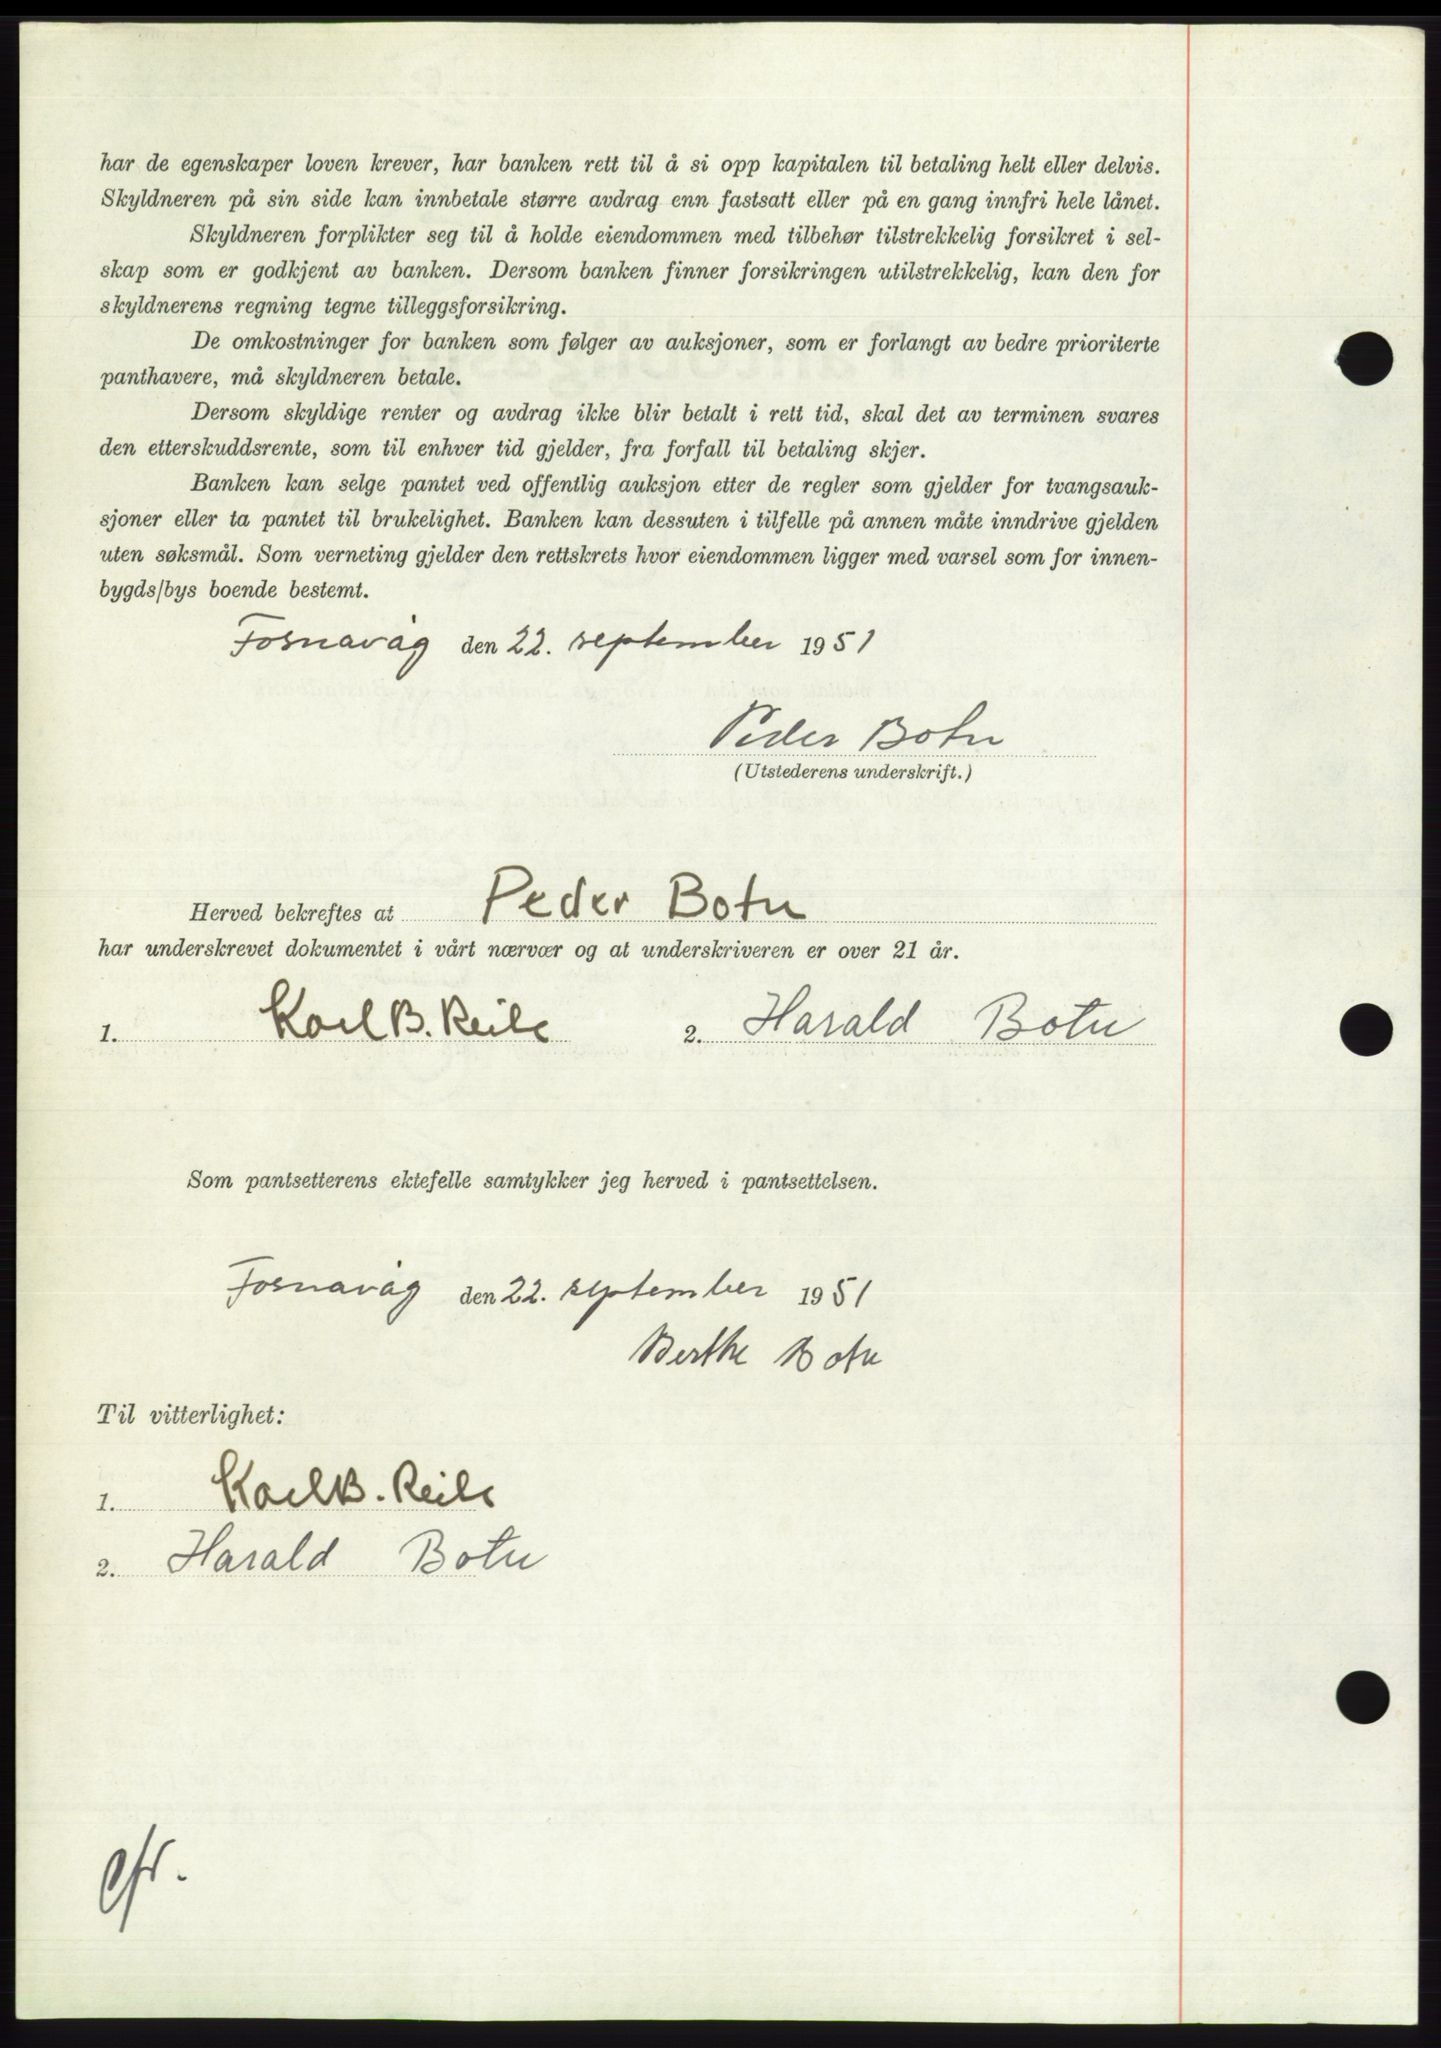 har de egenskaper loven krever, har banken rett til å si opp kapitalen til betaling helt eller delvis.
Skyldneren på sin side kan innbetale større avdrag enn fastsatt eller på en gang innfri hele lånet.
Skyldneren forplikter seg til å holde eiendommen med tilbehør tilstrekkelig forsikret i sel-
skap som er godkjent av banken. Dersom banken finner forsikringen utilstrekkelig, kan den for
skyldnerens regning tegne tilleggsforsikring.
De omkostninger for banken som følger av auksjoner, som er forlangt av bedre prioriterte
panthavere, må skyldneren betale.
Dersom skyldige renter og avdrag ikke blir betalt i rett tid, skal det av terminen svares
den etterskuddsrente, som til enhver tid gjelder, fra forfall til betaling skjer.
Banken kan selge pantet ved offentlig auksjon etter de regler som gjelder for tvangsauk-
sjoner eller ta pantet til brukelighet. Banken kan dessuten i tilfelle på annen måte inndrive gjelden
uten søksmål. Som verneting gjelder den rettskrets hvor eiendommen ligger med varsel som for innen-
bygds/bys boende bestemt.
Fosnavåg den 22. september 1951
Peder Botn
(Utstederens underskrift.)
Herved bekreftes at Peder Botn
har underskrevet dokumentet i vårt nærvær og at underskriveren er over 21 år.
1. Karl B. 2. Harald Botn
Som pantsetterens ektefelle samtykker jeg herved i pantsettelsen.
Fosnavåg den 22. september 1951
Berthe Botn
Til vitterlighet:
1. Karl B.
2. Harald Botn